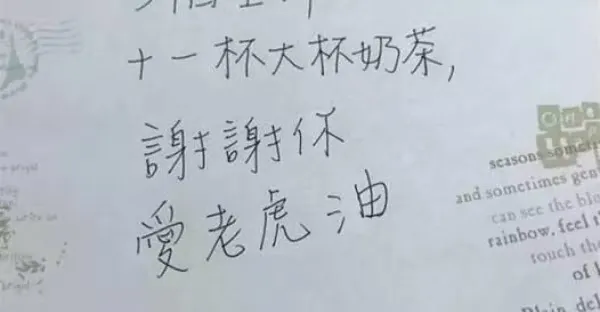 十一杯大杯奶茶,
謝謝你
愛老虎油
seasons sometim
and sometimes gen
can see the blo
rainbow. feel t
touch the
of l
Plain, del